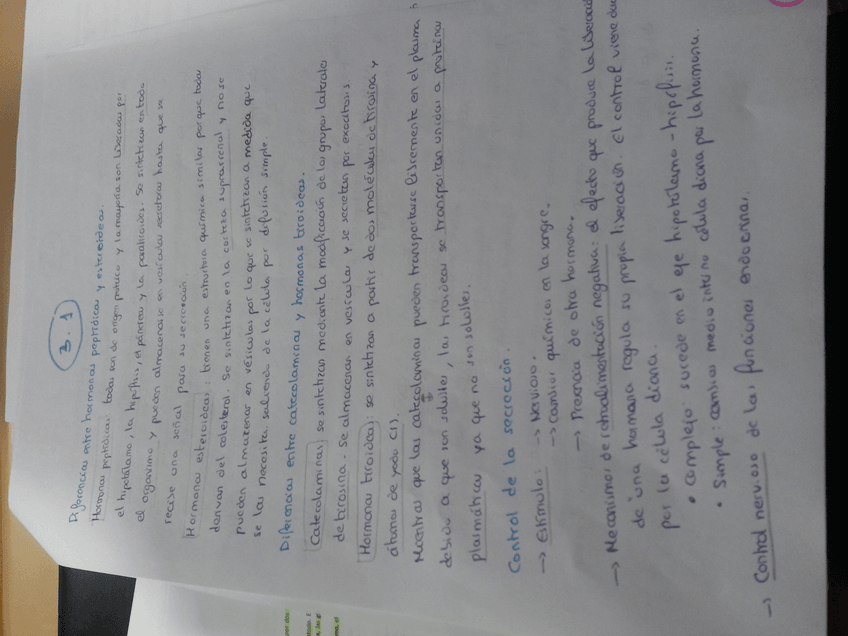 3.1
Diferencias entre hormonas peptídicas y esteroideas.
Hormonas peptídicas: todas son de origen proteico y la mayoría son liberadas por
el hipotálamo, la hipófisis, el páncreas y la paratiroides. Se sintetizan en todo
el organismo y pueden almacenarse en vesículas secretoras hasta que se
recibe una señal para su secreción.
Hormonas esteroideas: tienen una estructura química similar porque todas
derivan del colesterol. Se sintetizan en la corteza suprarrenal y no se
pueden almacenar en vesículas por lo que se sintetizan a medida que
se las necesita saliendo de la célula por difusión simple.
Diferencias entre catecolaminas y hormonas tiroideas.
Catecolaminas: se sintetizan mediante la modificación de los grupos laterales
de tirosina. Se almacenan en vesículas y se secretan por exocitosis
Hormonas tiroideas: se sintetizan a partir de dos moléculas de tirosina y
átomos de yodo (I).
Mientras que las catecolaminas pueden transportarse libremente en el plasma
debido a que son solubles, las tiroideas se transportan unidas a proteínas
plasmáticas ya que no son solubles.
Control de la secreción.
→ Estímulo: → Nervioso.
→ Cambios químicos en la sangre.
→ Presencia de otra hormona.
→ Mecanismos de retroalimentación negativa: el efecto que produce la liberación
de una hormona regula su propia liberación. El control viene dado
por la célula diana.
• Complejo: sucede en el eje hipotálamo - hipófisis.
• Simple: cambios medio interno célula diana por la hormona.
→ Control nervioso de las funciones endocrinas.
por dos: